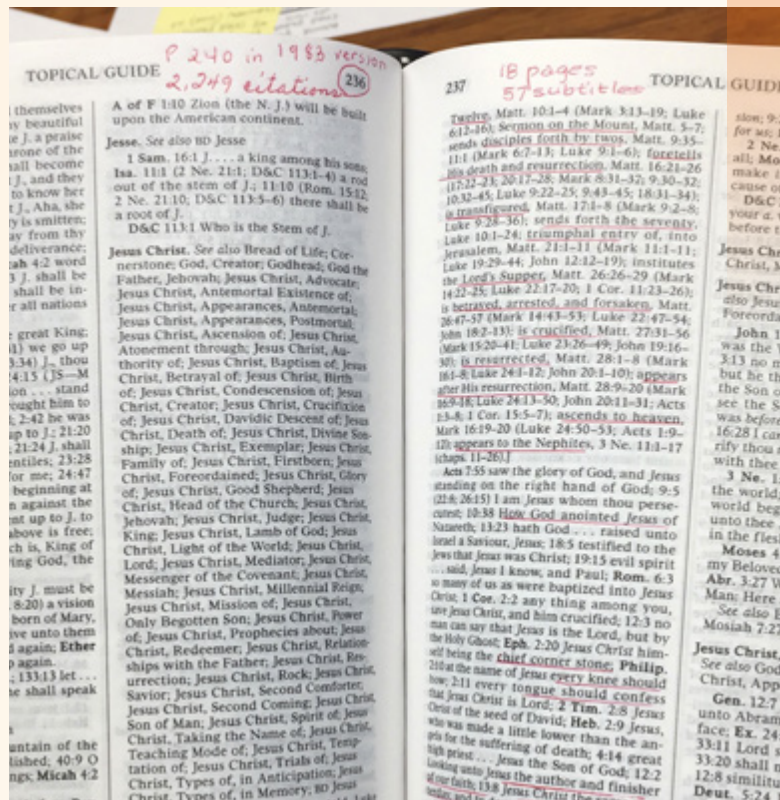 TOPICAL GUIDE
P 240 in 1983 version
2,249 citations
236
themselves
y beautiful
e J. a praise
rone of the
all become
J., and they
to know her
J., Aha, she
y is smitten;
ay from thy
deliverance;
ah 4:2 word
J. shall be
shall be in-
r all nations
great King;
1) we go up
3:34) J., thou
4:15 (JS—M
on . . . stand
ought him to
; 2:42 he was
up to J.; 21:20
; 21:24 J. shall
entiles; 23:28
for me; 24:47
beginning at
n against the
nt up to J. to
above is free;
ch is, King of
ing God, the
ity J. must be
8:20) a vision
born of Mary,
ve unto them
d again; Ether
p again.
; 133:13 let . . .
e shall speak
untain of the
lished; 40:9 O
ngs; Micah 4:2
A of F 1:10 Zion (the N. J.) will be built
upon the American continent.
Jesse. See also BD Jesse
1 Sam. 16:1 J. . . . a king among his sons;
Isa. 11:1 (2 Ne. 21:1; D&C 113:1–4) a rod
out of the stem of J.; 11:10 (Rom. 15:12;
2 Ne. 21:10; D&C 113:5–6) there shall be
a root of J.
D&C 113:1 Who is the Stem of J.
Jesus Christ. See also Bread of Life; Cor-
nerstone; God, Creator; Godhead; God the
Father, Jehovah; Jesus Christ, Advocate;
Jesus Christ, Antemortal Existence of;
Jesus Christ, Appearances, Antemortal;
Jesus Christ, Appearances, Postmortal;
Jesus Christ, Ascension of; Jesus Christ,
Atonement through; Jesus Christ, Au-
thority of; Jesus Christ, Baptism of; Jesus
Christ, Betrayal of; Jesus Christ, Birth
of; Jesus Christ, Condescension of; Jesus
Christ, Creator; Jesus Christ, Crucifixion
of; Jesus Christ, Davidic Descent of; Jesus
Christ, Death of; Jesus Christ, Divine Son-
ship; Jesus Christ, Exemplar; Jesus Christ,
Family of; Jesus Christ, Firstborn; Jesus
Christ, Foreordained; Jesus Christ, Glory
of; Jesus Christ, Good Shepherd; Jesus
Christ, Head of the Church; Jesus Christ,
Jehovah; Jesus Christ, Judge; Jesus Christ,
King; Jesus Christ, Lamb of God; Jesus
Christ, Light of the World; Jesus Christ,
Lord; Jesus Christ, Mediator; Jesus Christ,
Messenger of the Covenant; Jesus Christ,
Messiah; Jesus Christ, Millennial Reign;
Jesus Christ, Mission of; Jesus Christ,
Only Begotten Son; Jesus Christ, Power
of; Jesus Christ, Prophecies about; Jesus
Christ, Redeemer; Jesus Christ, Relation-
ships with the Father; Jesus Christ, Res-
urrection; Jesus Christ, Rock; Jesus Christ,
Savior; Jesus Christ, Second Comforter;
Jesus Christ, Second Coming; Jesus Christ,
Son of Man; Jesus Christ, Spirit of; Jesus
Christ, Taking the Name of; Jesus Christ,
Teaching Mode of; Jesus Christ, Temp-
tation of; Jesus Christ, Trials of; Jesus
Christ, Types of, in Anticipation; Jesus
Christ, Types of, in Memory; BD Jesus
237
18 pages
57 subtitles
TOPICAL GUIDE
Twelve, Matt. 10:1–4 (Mark 3:13–19; Luke
6:12–16); Sermon on the Mount, Matt. 5–7;
sends disciples forth by twos, Matt. 9:35–
11:1 (Mark 6:7–13; Luke 9:1–6); foretells
His death and resurrection, Matt. 16:21–26
(17:22–23; 20:17–28; Mark 8:31–37; 9:30–32;
10:32–45; Luke 9:22–25; 9:43–45; 18:31–34);
is transfigured, Matt. 17:1–8 (Mark 9:2–8;
Luke 9:28–36); sends forth the seventy,
Luke 10:1–24; triumphal entry of, into
Jerusalem, Matt. 21:1–11 (Mark 11:1–11;
Luke 19:29–44; John 12:12–19); institutes
the Lord's Supper, Matt. 26:26–29 (Mark
14:22–25; Luke 22:17–20; 1 Cor. 11:23–26);
is betrayed, arrested, and forsaken, Matt.
26:47–57 (Mark 14:43–53; Luke 22:47–54;
John 18:2–13); is crucified, Matt. 27:31–56
(Mark 15:20–41; Luke 23:26–49; John 19:16–
30); is resurrected, Matt. 28:1–8 (Mark
16:1–8; Luke 24:1–12; John 20:1–10); appears
after His resurrection, Matt. 28:9–20 (Mark
16:9–18; Luke 24:13–50; John 20:11–31; Acts
1:3–8; 1 Cor. 15:5–7); ascends to heaven,
Mark 16:19–20 (Luke 24:50–53; Acts 1:9–
12); appears to the Nephites, 3 Ne. 11:1–17
(chaps. 11–26).]
Acts 7:55 saw the glory of God, and Jesus
standing on the right hand of God; 9:5
(22:8; 26:15) I am Jesus whom thou perse-
cutest; 10:38 How God anointed Jesus of
Nazareth; 13:23 hath God . . . raised unto
Israel a Saviour, Jesus; 18:5 testified to the
Jews that Jesus was Christ; 19:15 evil spirit
. . . said, Jesus I know, and Paul; Rom. 6:3
so many of us as were baptized into Jesus
Christ; 1 Cor. 2:2 any thing among you,
save Jesus Christ, and him crucified; 12:3 no
man can say that Jesus is the Lord, but by
the Holy Ghost; Eph. 2:20 Jesus Christ him-
self being the chief corner stone; Philip.
2:10 at the name of Jesus every knee should
bow; 2:11 every tongue should confess
that Jesus Christ is Lord; 2 Tim. 2:8 Jesus
Christ of the seed of David; Heb. 2:9 Jesus,
who was made a little lower than the an-
gels for the suffering of death; 4:14 great
high priest . . . Jesus the Son of God; 12:2
Looking unto Jesus the author and finisher
of our faith; 13:8 Jesus Christ the
sion; 9:
for us;
2 Ne.
all; Mo
make i
cause o
D&C
your a
before t
Jesus Chr
Christ,
Jesus Chr
also Jesu
Foreorda
John 1
was the
3:13 no m
but he th
the Son o
see the S
was before
16:28 I ca
rify thou
with thee
3 Ne. 1
the world
world beg
unto thee
in the fles
Moses 4
my Belove
Abr. 3:27 W
Man: Here
See also
Mosiah 7:2
Jesus Christ,
See also God
Christ, App
Gen. 12:7
unto Abram
face; Ex. 24:
33:11 Lord s
33:20 shall n
12:8 similitu
Deut. 5:24